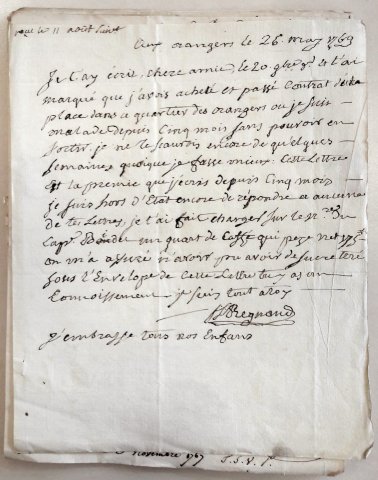 reçue le 11 aoust suivt
Aux orangers le 26. may 1769
Je t'ay écrit, chere amie, le 20. et t'ai
marqué que j'avois acheté et passé Contrat de la
place dans ce quartier des orangers ou je suis
malade depuis Cinq mois sans pouvoir en
sortir, je ne le scaurois encore de quelques
semaines, quoique je fasse mieux. Cette Lettre
est la premiere que j'ecris depuis Cinq mois
Je suis hors d'Etat encore de répondre a aucune
de tes Lettres, je t'ai fait charger sur le du
Cape. un quart de Caffé qui peze net 175
on m'a assuré n'avoir pu avoir de sucre terré
sous l'Envelope de Cette Lettre tu y as un
Connoissement je suis tout a toy
Regnaud
J'embrasse tous nos Enfans
novembre 1767